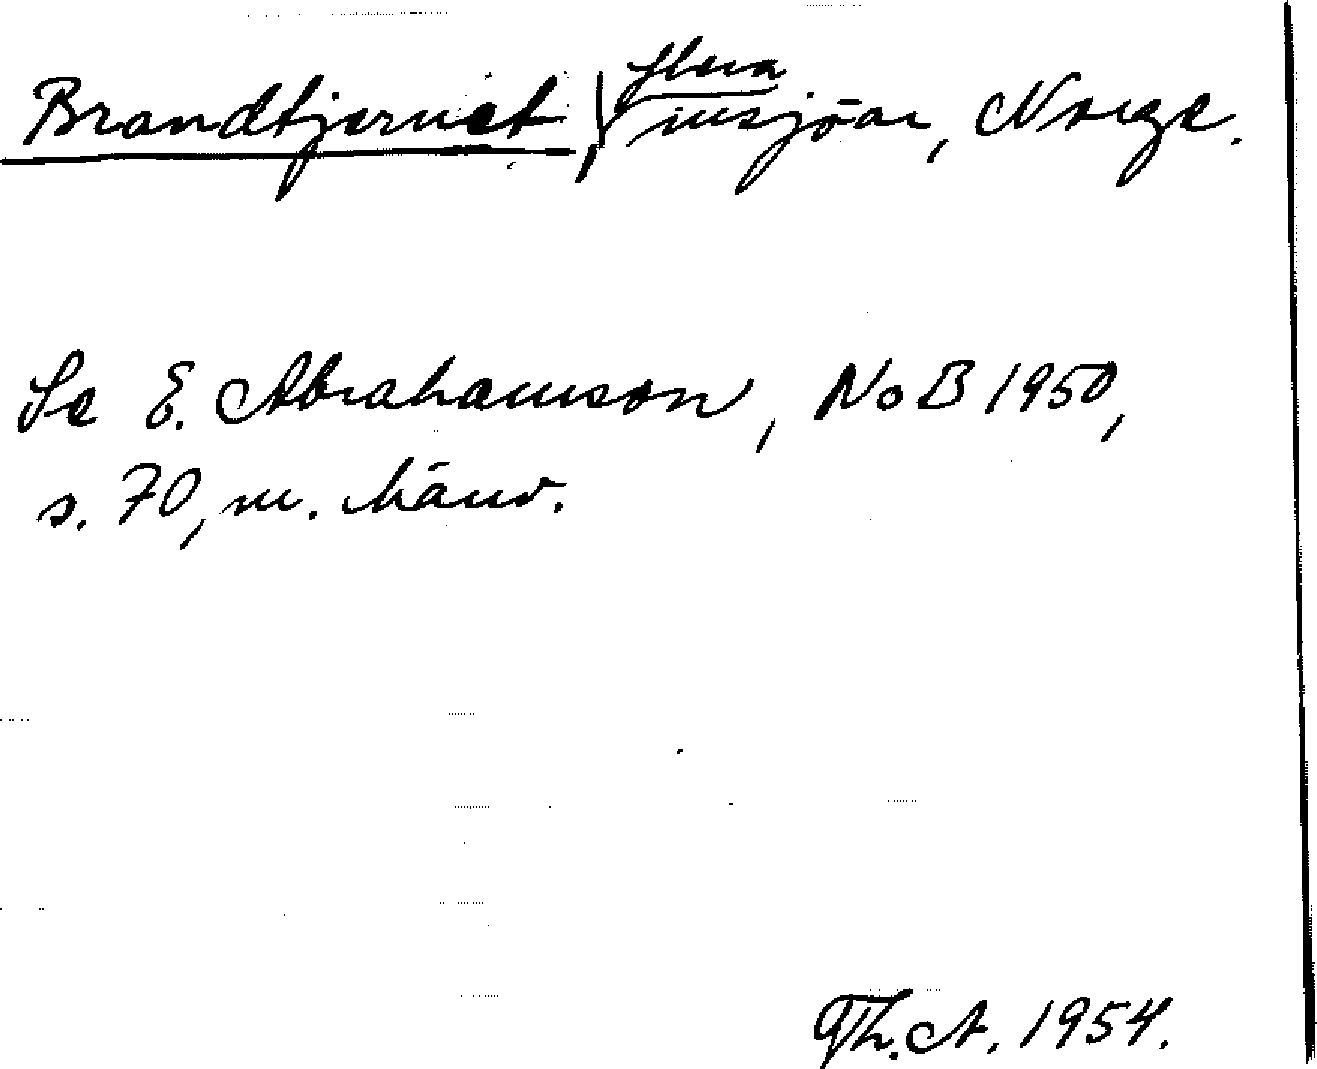 Brandtjernet, flera insjöar, Norge.
Se E. Abrahamson, NoB 1950,
s. 70, m. hänv.
Th. A. 1954.